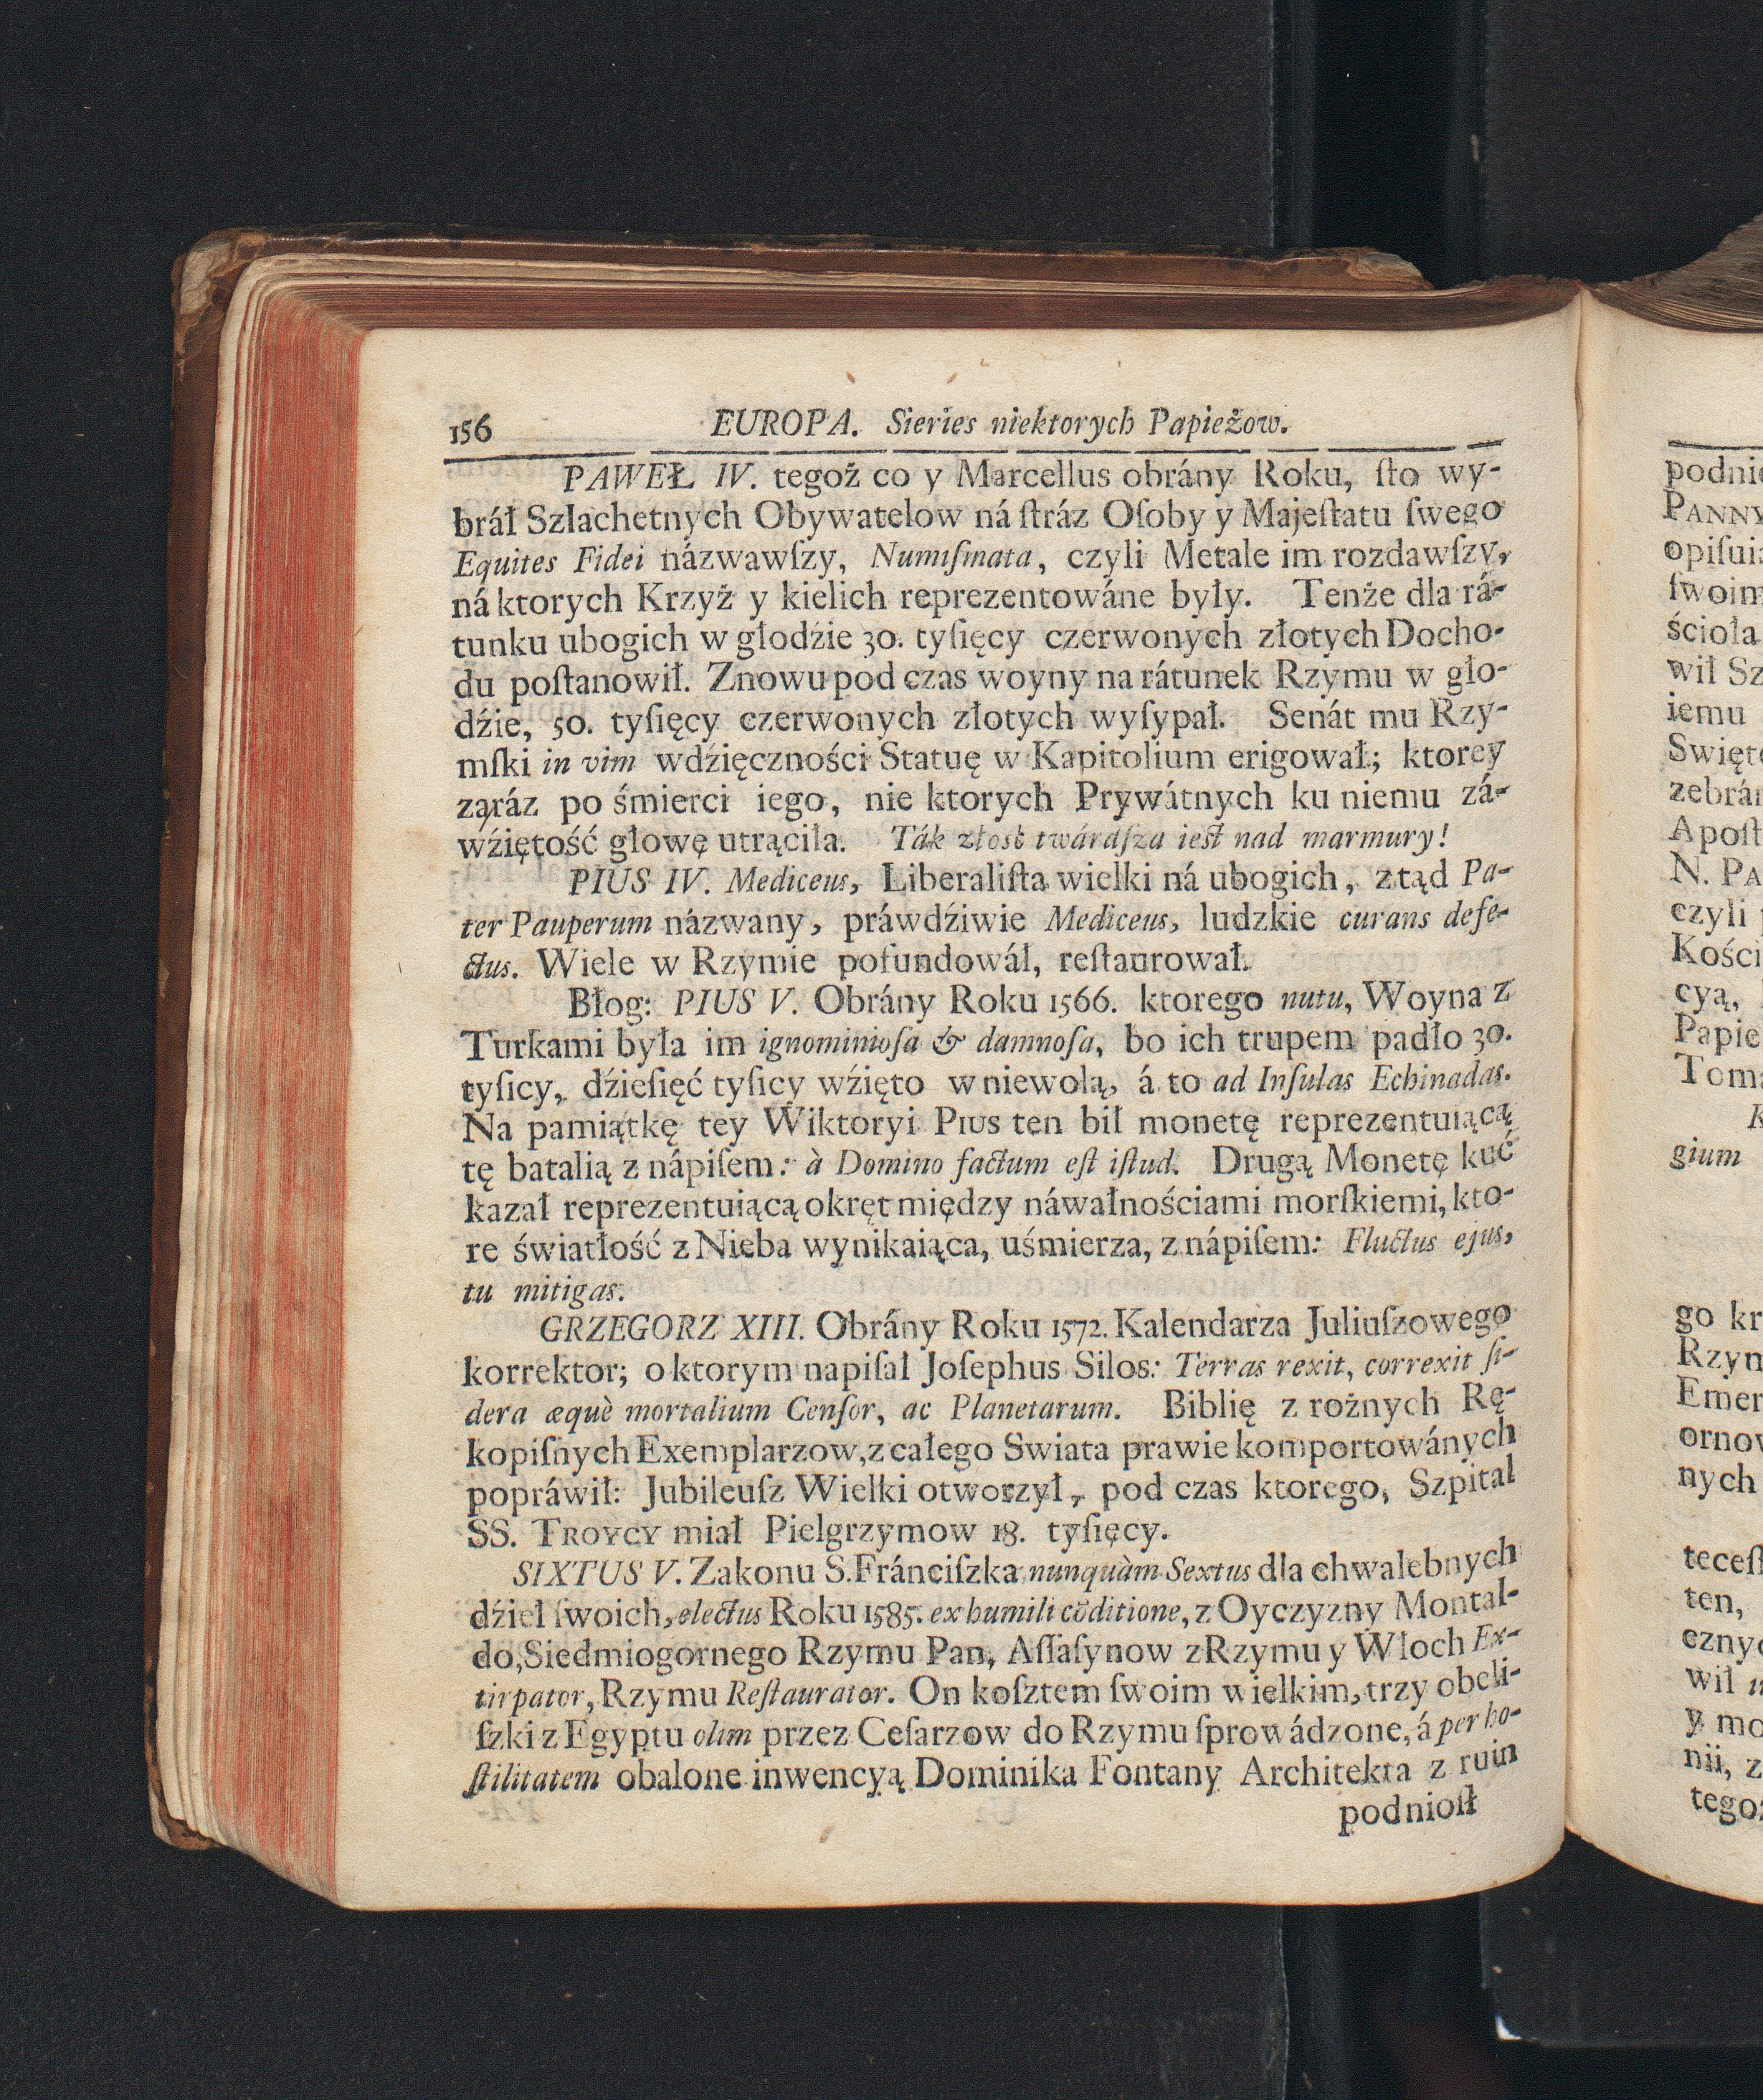 156 EUROPA. Sieries niektorych Papieżow.
PAWEŁ IV. tegoż co y Marcellus obrány Roku, ſto wy-
bráł Szlachetnych Obywatelow ná ſtráz Oſoby y Majeſtatu ſwego
Equites Fidei názwawſzy, Numiſmata, czyli Metale im rozdawſzy,
ná ktorych Krzyż y kielich reprezentowáne były. Tenże dla rá-
tunku ubogich w głodźie 30. tyſięcy czerwonych złotych Docho-
du poſtanowił. Znowu pod czas woyny na rátunek Rzymu w gło-
dźie, 50. tyſięcy czerwonych złotych wyſypał. Senát mu Rzy-
mſki in vim wdźięczności Statuę w Kapitolium erigował; ktorey
ząráz po śmierci iego, nie ktorych Prywátnych ku niemu zá-
wźiętość głowę utrąciła. Ták złość twárdſza ieſt nad marmury!
PIUS IV. Mediceus, Liberaliſta wielki ná ubogich, ztąd Pa-
ter Pauperum názwany, práwdźiwie Mediceus, ludzkie curans defe-
ctus. Wiele w Rzymie pofundowáł, reſtaurował.
Błog: PIUS V. Obrány Roku 1566. ktorego nutu, Woyna z
Turkami była im ignominioſa & damnoſa, bo ich trupem padło 30.
tyſicy, dźieſięć tyſicy wźięto w niewolą, á to ad Inſulas Echinadas.
Na pamiątkę tey Wiktoryi PIUS ten bił monetę reprezentuiącą
tę batalią z nápiſem: à Domino factum eſt iſtud. Drugą Monetę kuć
kazał reprezentuiącą okręt między náwałnościami morſkiemi, kto-
re światłość z Nieba wynikaiąca, uśmierza, z nápiſem: Fluctus ejus,
tu mitigas.
GRZEGORZ XIII. Obrány Roku 1572. Kalendarza Juliuſzowego
korrektor; o ktorym napiſał Joſephus Silos: Terras rexit, correxit ſi-
dera æquè mortalium Cenſor, ac Planetarum. Biblię z rożnych Rę-
kopiſnych Exemplarzow, z całego Swiata prawie komportowánych
popráwił: Jubileuſz Wielki otworzył, pod czas ktorego, Szpital
SS. TROYCY miał Pielgrzymow 18. tyſięcy.
SIXTUS V. Zakonu S. Fránciſzka nunquàm Sextus dla chwalebnych
dźieł ſwoich, electus Roku 1585. ex humili cõditione, z Oyczyzny Montal-
do, Siedmiogornego Rzymu Pan, Aſſaſynow z Rzymu y Włoch Ex-
tirpator, Rzymu Reſtaurator. On koſztem ſwoim wielkim, trzy obeli-
ſzki z Egyptu olim przez Ceſarzow do Rzymu ſprowádzone, á per ho-
ſtilitatem obalone inwencyą Dominika Fontany Architekta z ruin
podnioſł
podnie
PANNY
opiſuią
ſwoim
ścioła
wił Sz
iemu
Swięte
zebrán
Apoſt
N. PA
czyli
Kości
cyą,
Papie
Toma
K
gium
go kr
Rzym
Emer
ornow
nych
teceſſ
ten,
cznyc
wił
y mo
nii, z
tego